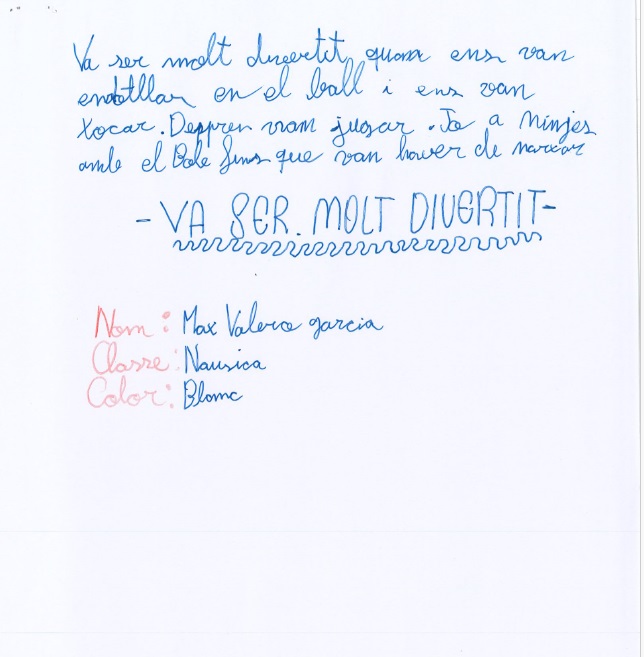 Va ser molt divertit quan ens van
endollar en el ball i ens van
xocar. Despres vam jugar. Jo a Ninjes
amb el Bole fins que van haver de marxar
-VA SER. MOLT DIVERTIT-
Nom: Max Valero garcia
Classe: Nausica
Color: Blanc